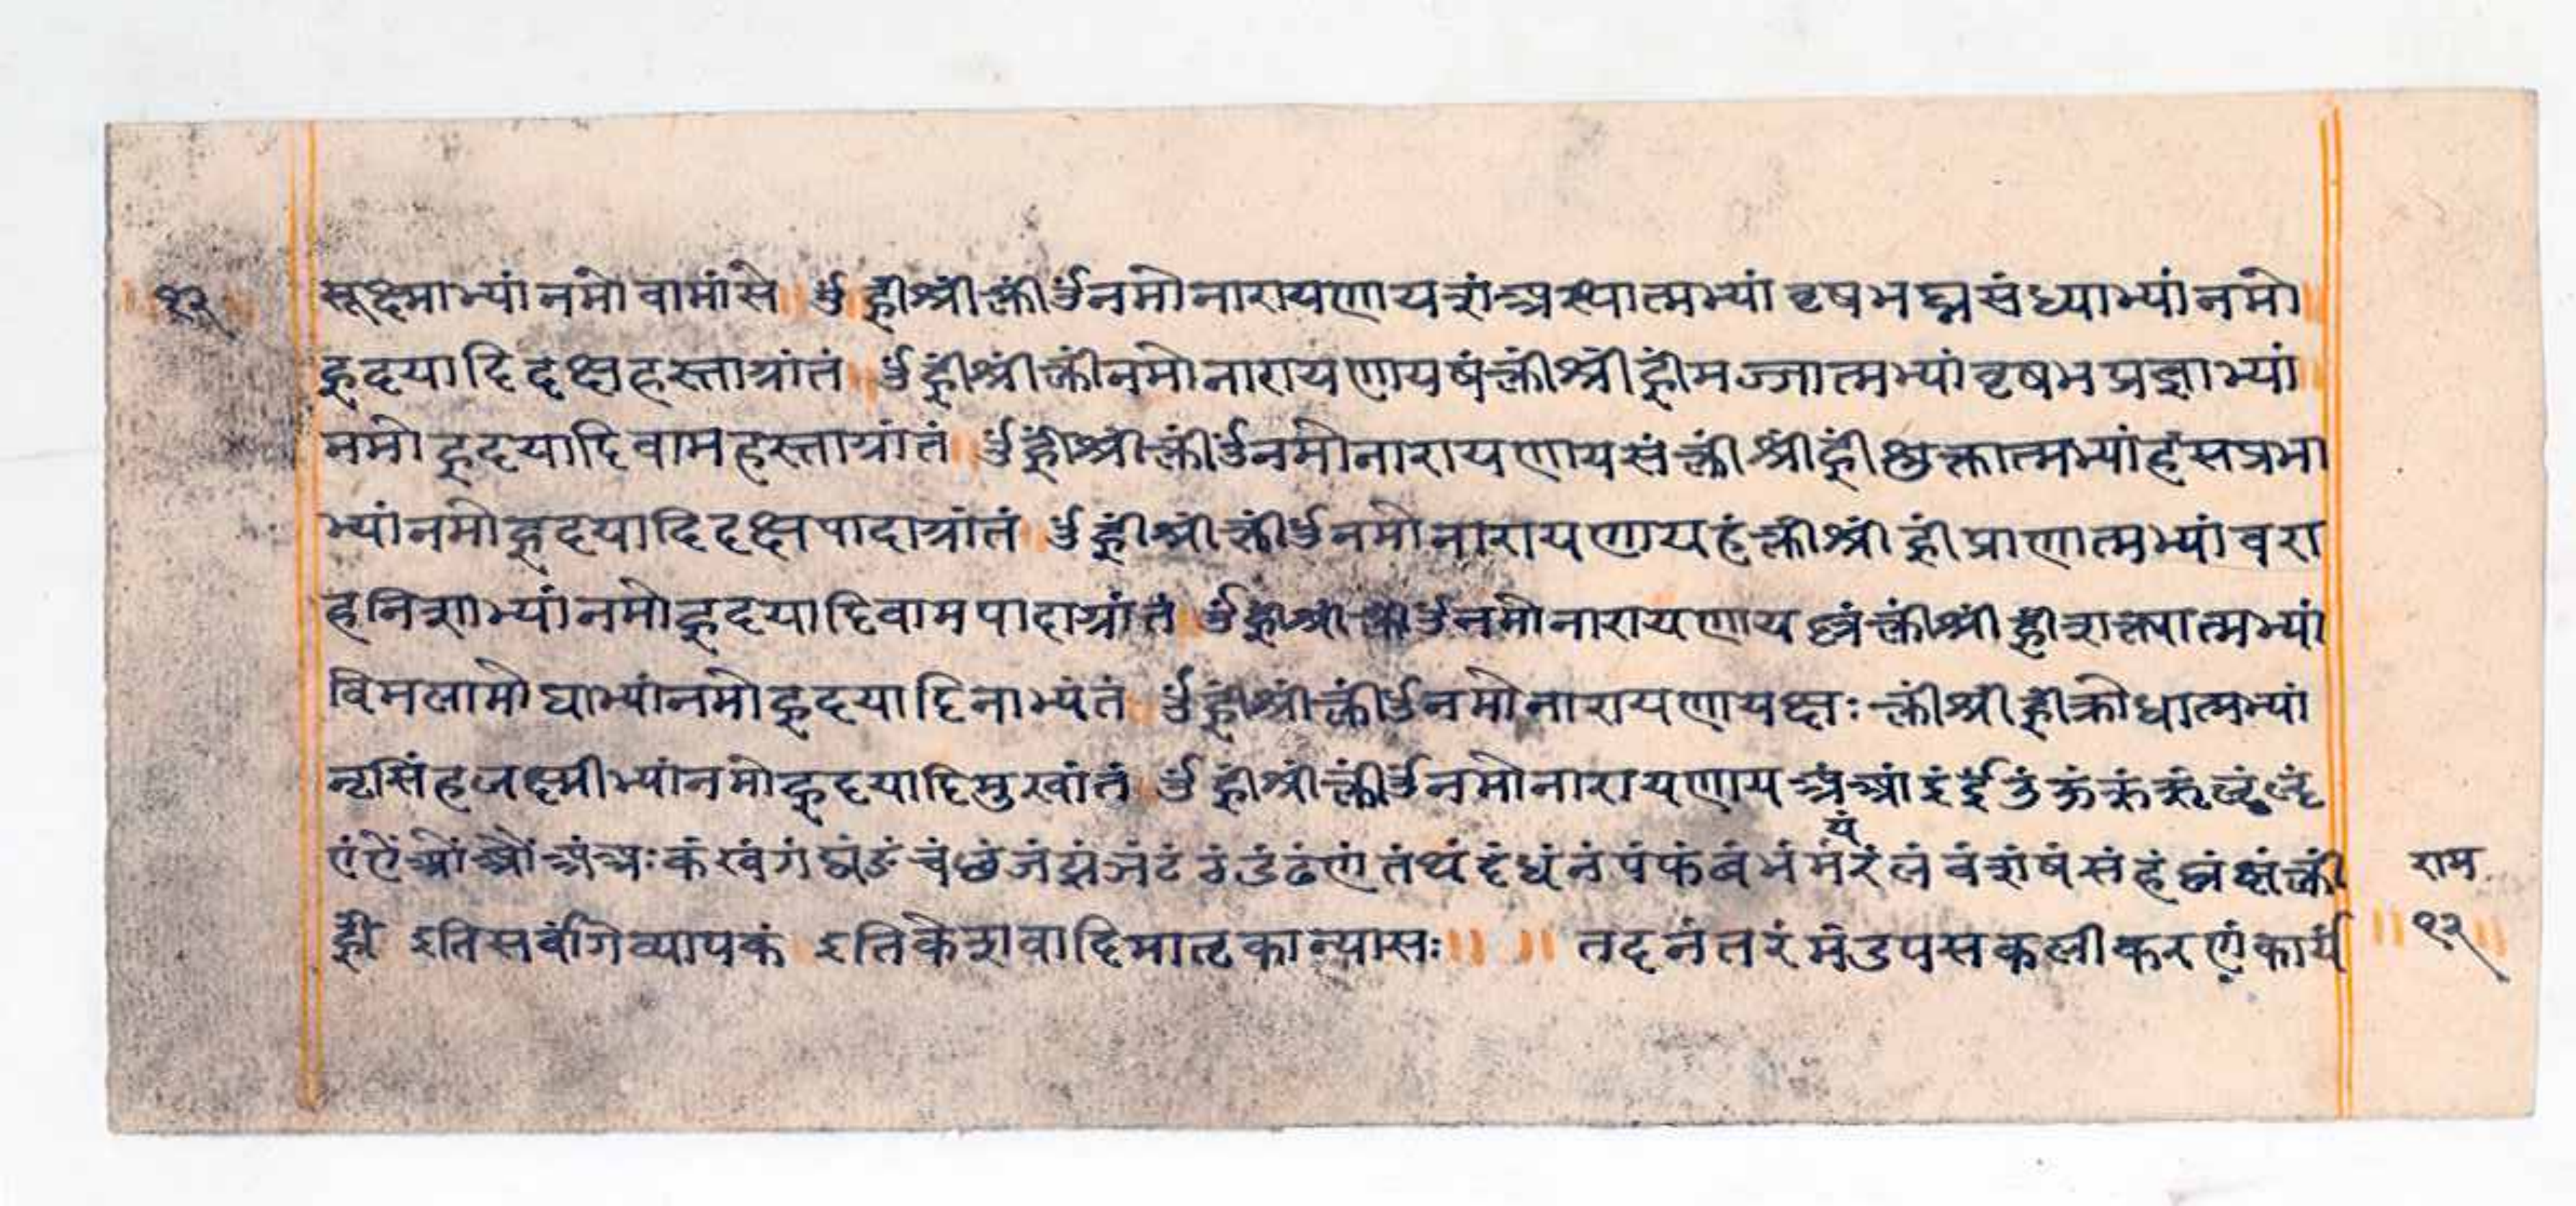 १२
सूक्ष्माभ्यां नमो वामांसे ॥ ॐ ह्रीं श्रीं क्लीं ॐ नमो नारायणाय शं अस्थ्यात्मभ्यां वृषभघ्नसंध्याभ्यां नमो
हृदयादि दक्षहस्ताग्रांतं ॥ ॐ ह्रीं श्रीं क्लीं नमो नारायणाय षं क्लीं श्रीं ह्रीं मज्जात्मभ्यां वृषभप्रज्ञाभ्यां
नमो हृदयादि वामहस्ताग्रांतं ॥ ॐ ह्रीं श्रीं क्लीं ॐ नमो नारायणाय सं क्लीं श्रीं ह्रीं शुक्लात्मभ्यां हंसप्रभा
भ्यां नमो हृदयादि दक्षपादाग्रांतं ॥ ॐ ह्रीं श्रीं क्लीं ॐ नमो नारायणाय हं क्लीं श्रीं ह्रीं प्राणात्मभ्यां वरा
हनिशाभ्यां नमो हृदयादि वामपादाग्रांतं ॥ ॐ ह्रीं श्रीं क्लीं ॐ नमो नारायणाय क्लीं श्रीं ह्रीं शक्त्यात्मभ्यां
विमलामोघाभ्यां नमो हृदयादि नाभ्यंतं ॥ ॐ ह्रीं श्रीं क्लीं ॐ नमो नारायणाय क्षः क्लीं श्रीं ह्रीं क्रोधात्मभ्यां
नृसिंहलक्ष्मीभ्यां नमो हृदयादि मुखांतं ॥ ॐ ह्रीं श्रीं क्लीं ॐ नमो नारायणाय अं आं इं ईं उं ऊं ऋं ॠं ऌं ॡं
एं ऐं ओं औं अं अः कं खं गं घं ङं चं छं जं झं ञं टं ठं डं ढं णं तं थं दं धं नं पं फं बं भं मं यं रं लं वं शं षं सं हं ळं क्षं क्लीं
ह्रीं इति सर्वांगे व्यापकं इति केशवादिमातृकान्यासः ॥ ॥ तदनंतरं मंडपसकलीकरणं कार्यं
राम
॥ १२ ॥